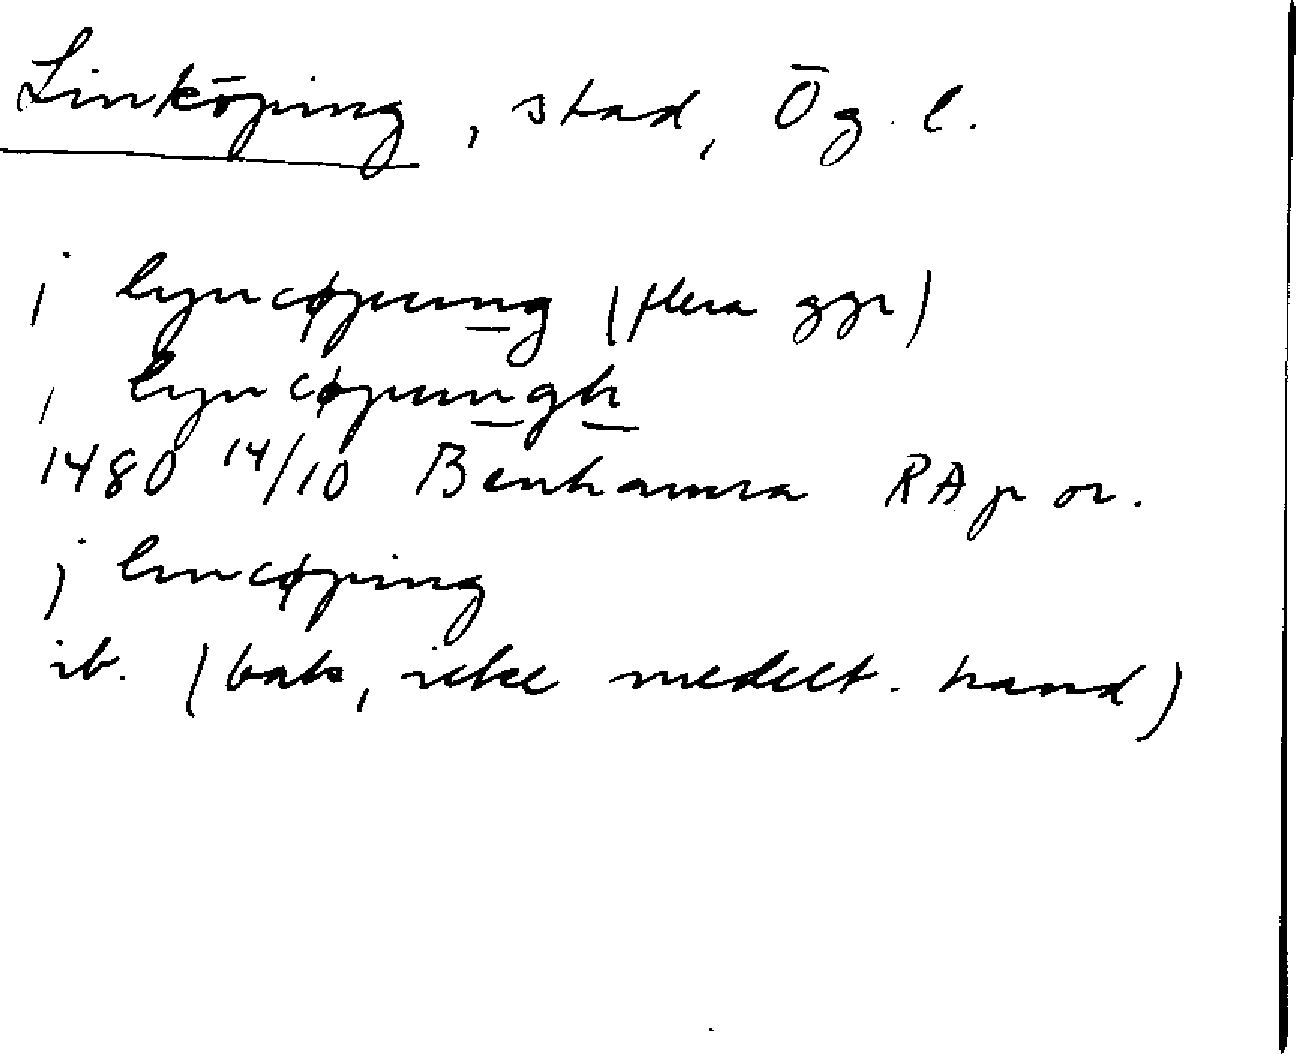 Linköping, stad, Ög. l.
j lyncøpung (flera ggr)
j lyncøpungh
1480 14/10 Benhamra RA p or.
j lincøping
ib. (baks, icke medelt. hand)